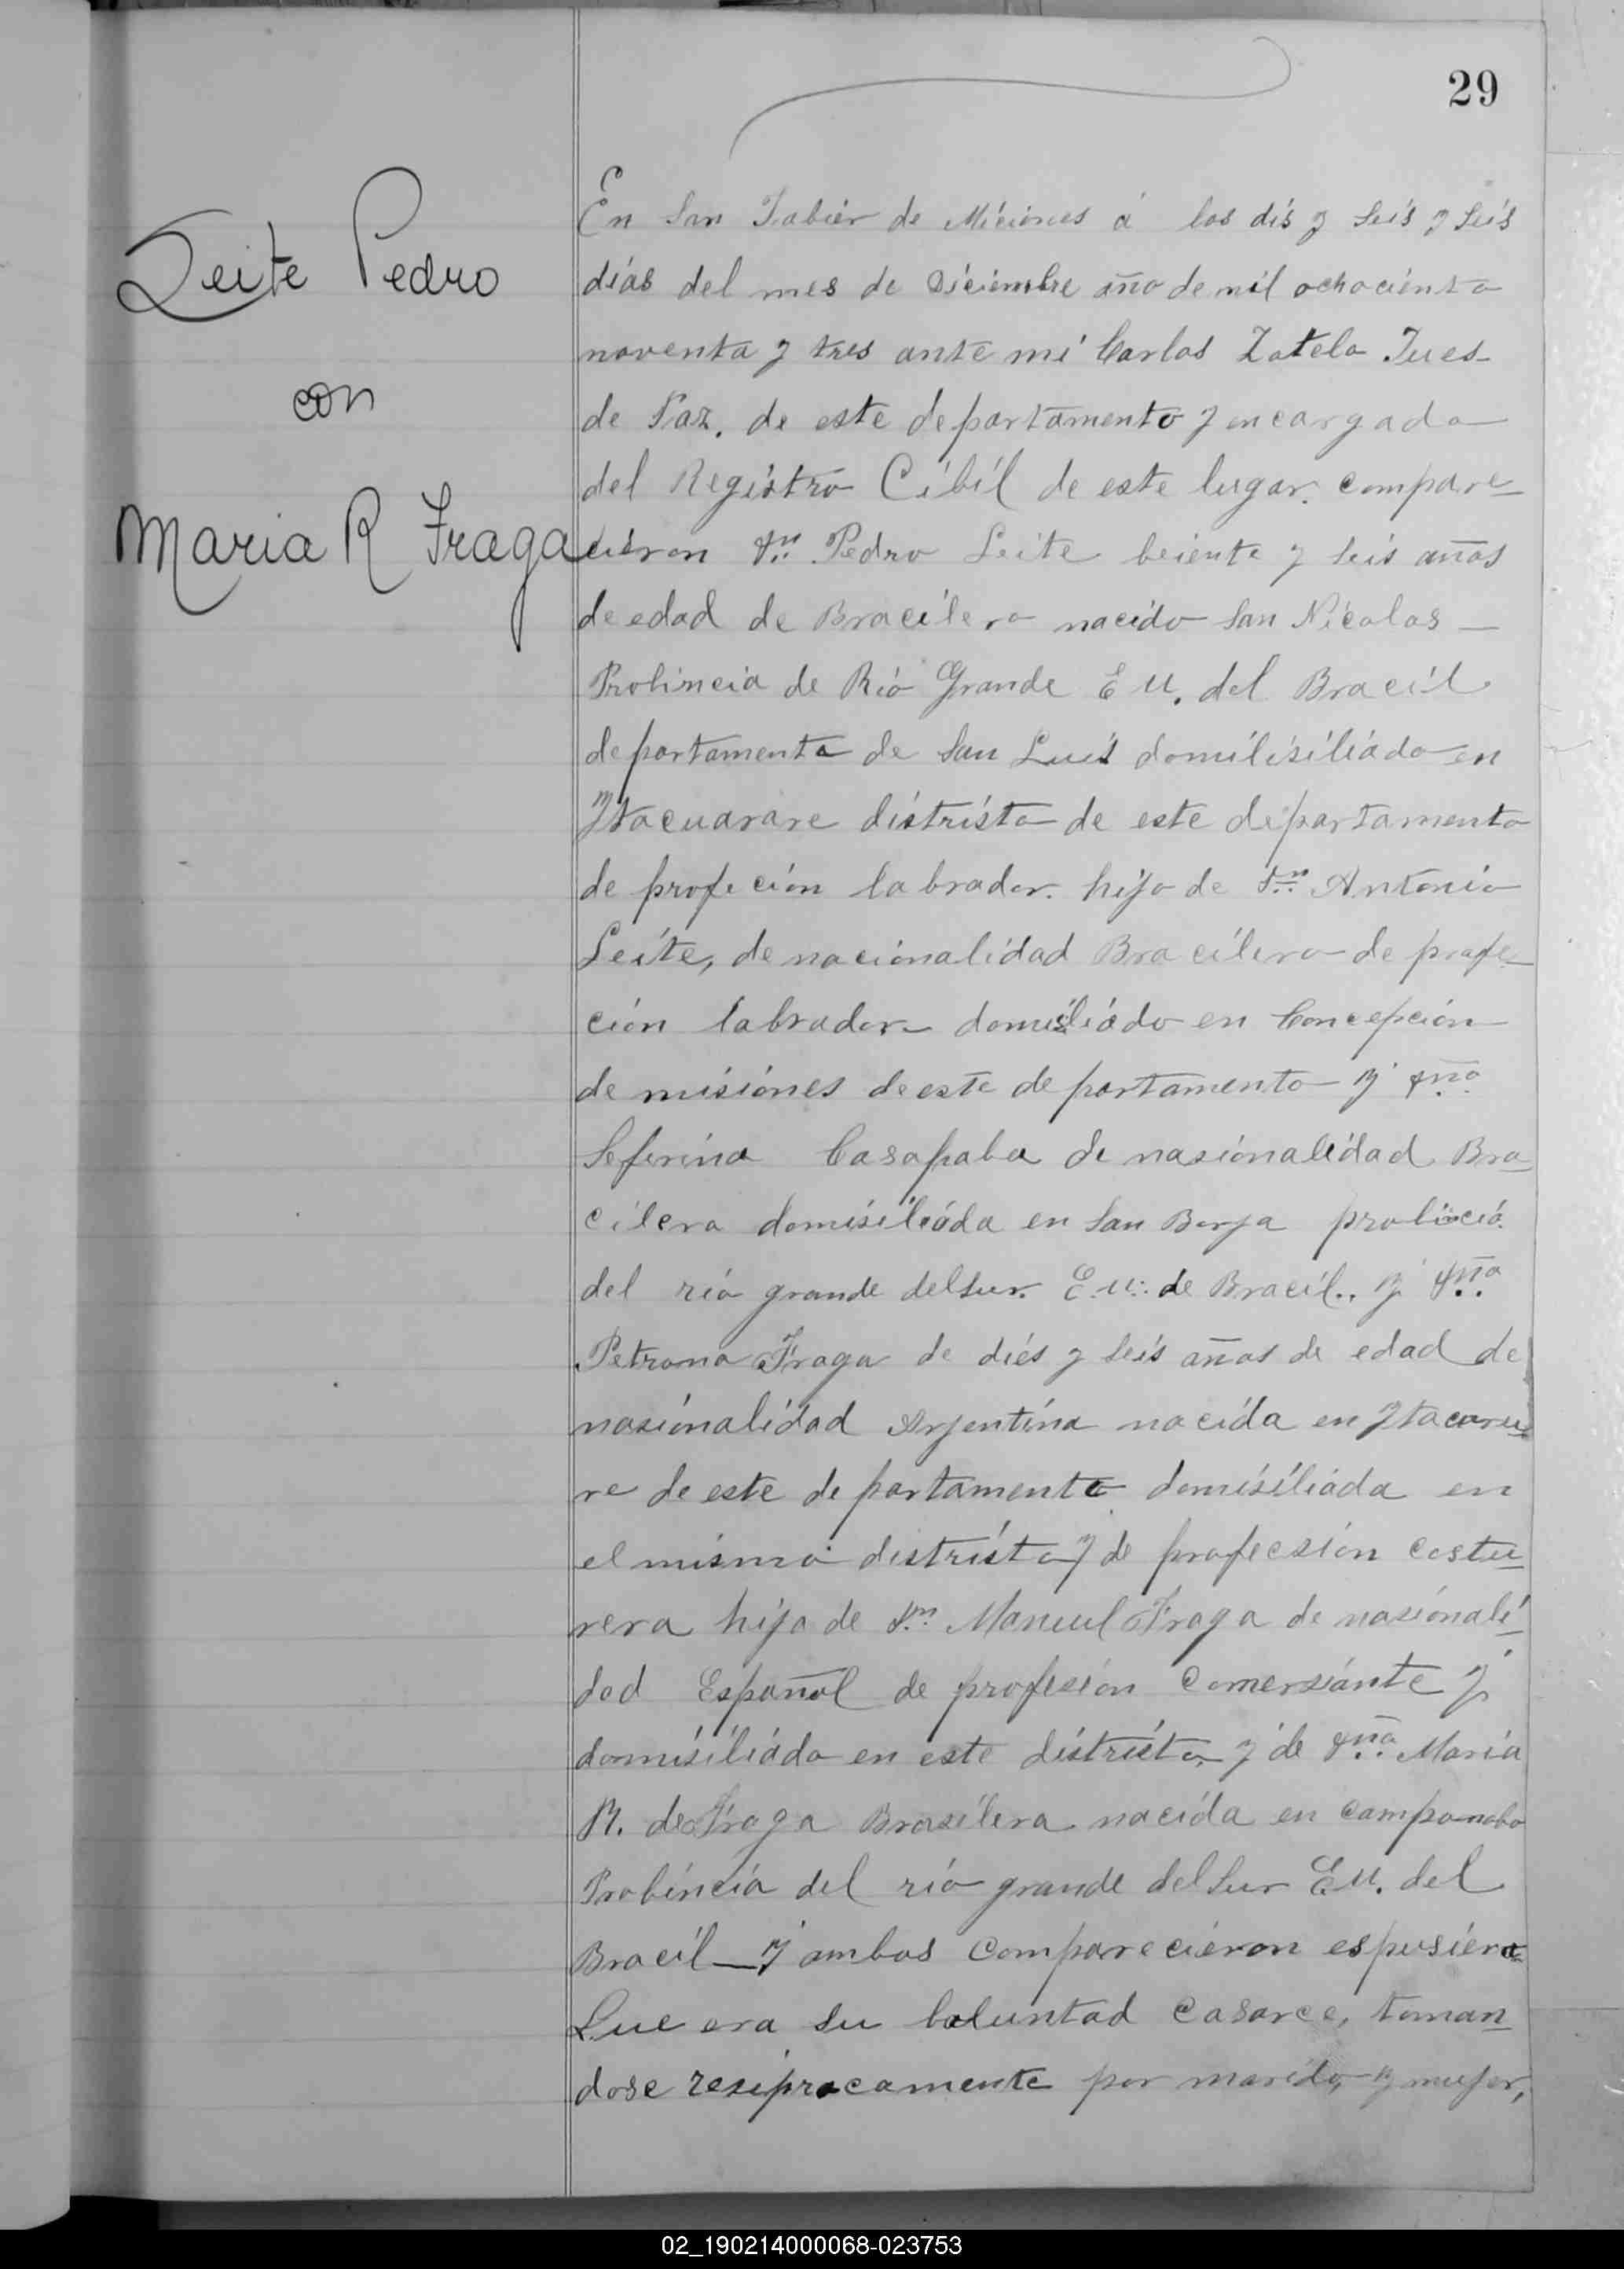 29
Leite Pedro
con
Maria R Fraga
En San Jabier de Miciones á los dis y seis y seis
dias del mes de Diciembre año de mil ochociento
noventa y tres ante mi Carlos Zatelo Jues
de Paz. de este departamento y encargado
del Registro Cibil de este lugar. compare
cieron Dn. Pedro Leite beiente y seis años
de edad de Bracilero nacido San Nicolas
Probincia de Rio Grande E U. del Bracil
departamento de San Luis domilisiliado en
Ytacuarare distristo de este departamento
de profecion labrador. hijo de Dn. Antonio
Leite, de nacionalidad Bracilero de profe
cion labrador domisiliado en Concepcion
de misiones de este departamento y Dña.
Seferina de nasionalidad Bra
cilera domisiliada en San Borja probincia
del rio grande del sur. E. U: de Bracil.. y Dña.
Petrona Fraga de diés y seis años de edad de
nasionalidad Arjentina nacida en Ytacuru
re de este departamento domisiliada en
el mismo distristo y de profecsion costu
rera hija de Dn. Manuel Fraga de nasionali
dad Español de profesion comersiante y
domisiliado en este distristo y de Dña. Maria
R. de Fraga Brasilera nacida en campo nobo
Probincia del rio grande del Sur E U. del
Bracil y ambos comparecieron espusiero
Que era su boluntad casarce, toman
dose resiprocamente por marido y mujer,
02_190214000068-023753